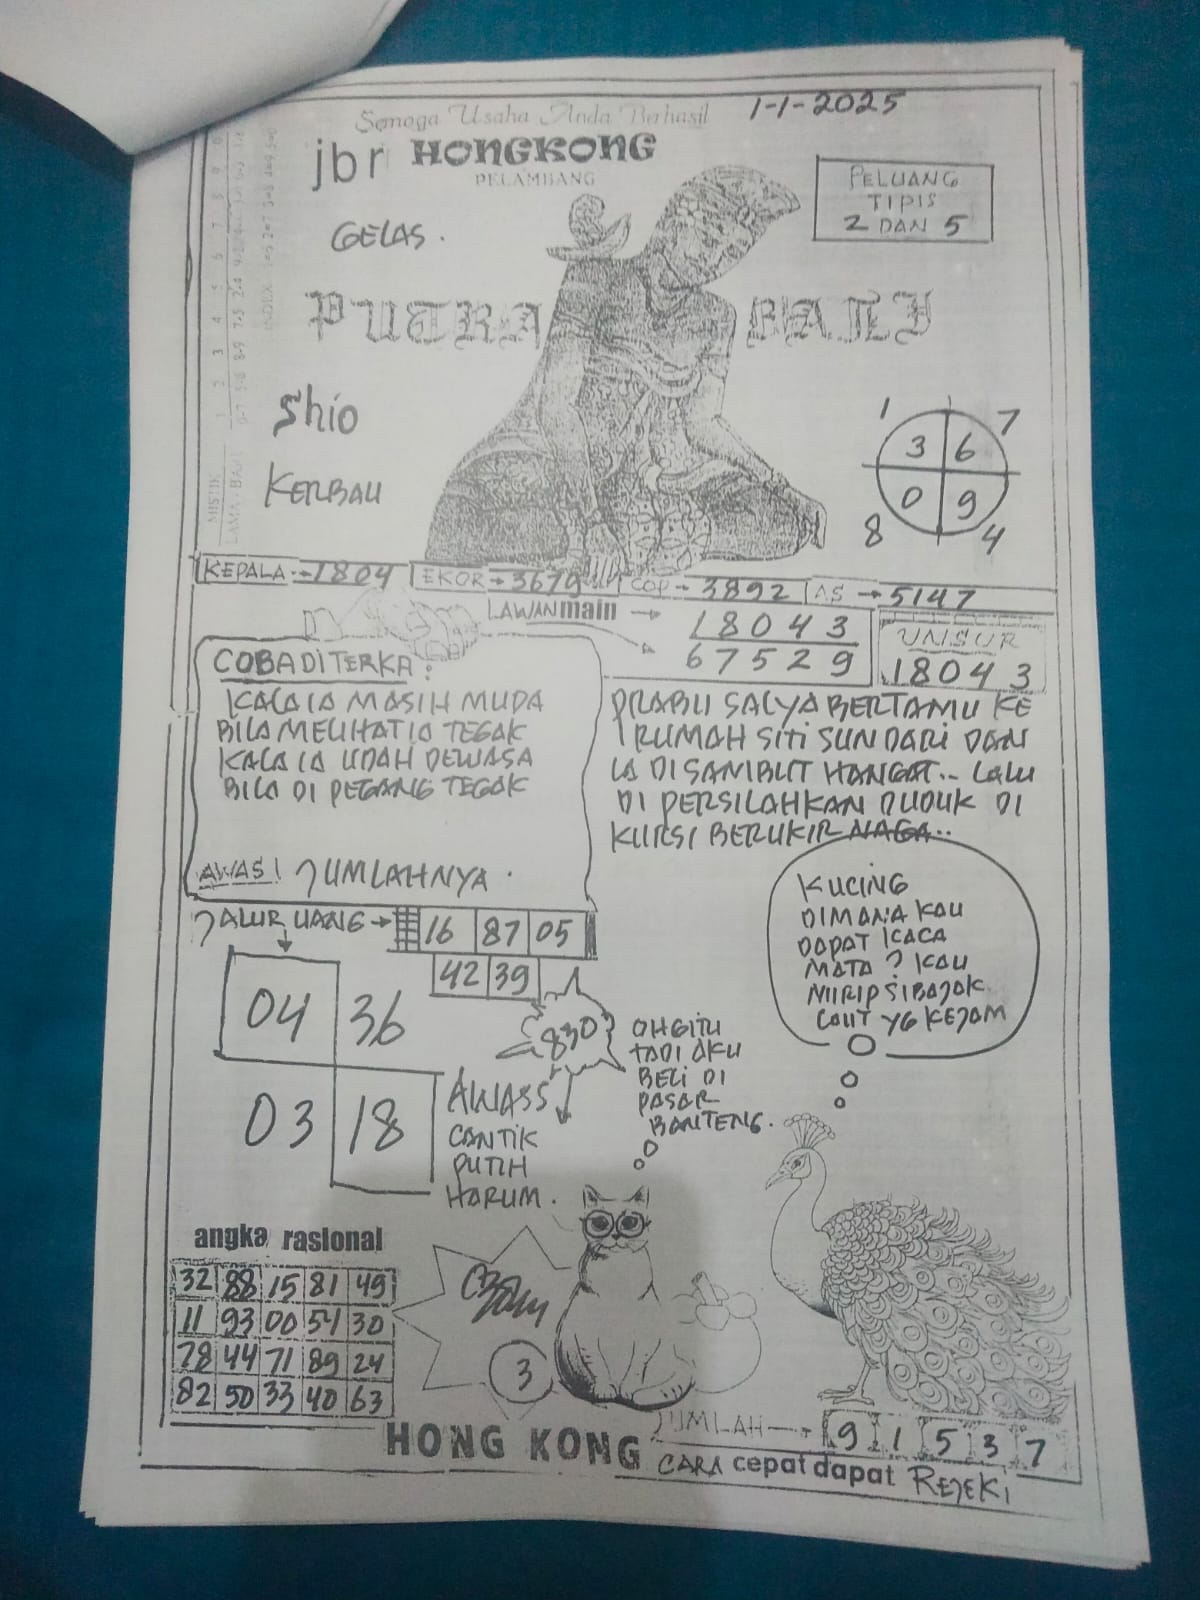 Semoga Usaha Anda Berhasil
1-1-2025
jbr HONGKONG
PELAMBANG
PELUANG
TIPIS
2 DAN 5
GELAS.
PUTRA BALI
Shio
KERBAU
1 7
3 6
0 9
8 4
KEPALA → 1804 EKOR → 3679 COP → 3892 AS → 5147
LAWAN main → 18043
67529
UNSUR
18043
COBA DITERKA:
KALA IA MASIH MUDA
BILA MELIHAT IA TEGAK
KALA IA UDAH DEWASA
BILA DI PEGANG TEGAK
AWAS! JUMLAHNYA.
PRABU SALYA BERTAMU KE
RUMAH SITI SUNDARI DAN
IA DISAMBUT HANGAT.. LALU
DI PERSILAHKAN DUDUK DI
KURSI BERUKIR NAGA..
JALUR UANG → 16 87 05
42 39
04 36
03 18
830
AWASS
CANTIK
PUTIH
HARUM.
OH GITU
TADI AKU
BELI DI
PASAR
BANTENG.
KUCING
DIMANA KAU
DAPAT KACA
MATA ? KAU
MIRIP SI BAJAK
LAUT YG KEJAM
angka rasional
32 88 15 81 49
11 93 00 51 30
78 44 71 89 24
82 50 33 40 63
3
HONG KONG
JUMLAH → 9 1 5 3 7
CARA cepat dapat REJEKI